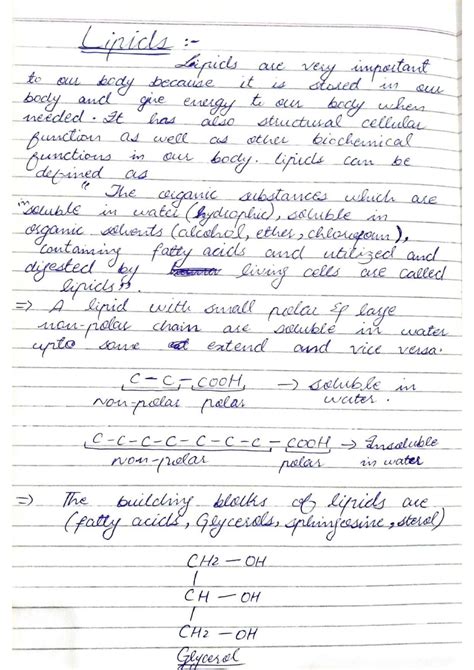 Lipids :-
Lipids are very important
to our body because it is stored in our
body and give energy to our body when
needed. It has also structural cellular
function as well as other biochemical
functions in our body. lipids can be
defined as
" The organic substances which are
"soluble in water (hydrophic), soluble in
organic solvents (alcohol, ether, chloroform),
containing fatty acids and utilized and
digested by living cells are called
lipids".
=> A lipid with small polar & large
non-polar chain are soluble in water
upto some extend and vice versa.
C - C - COOH, -> soluble in
non-polar polar water.
C-C-C-C-C-C-C - COOH -> Insoluble
non-polar polar in water
=> The building blocks of lipids are
(fatty acids, Glycerols, sphingosine, sterol)
CH2 - OH
|
CH - OH
|
CH2 - OH
Glycerol